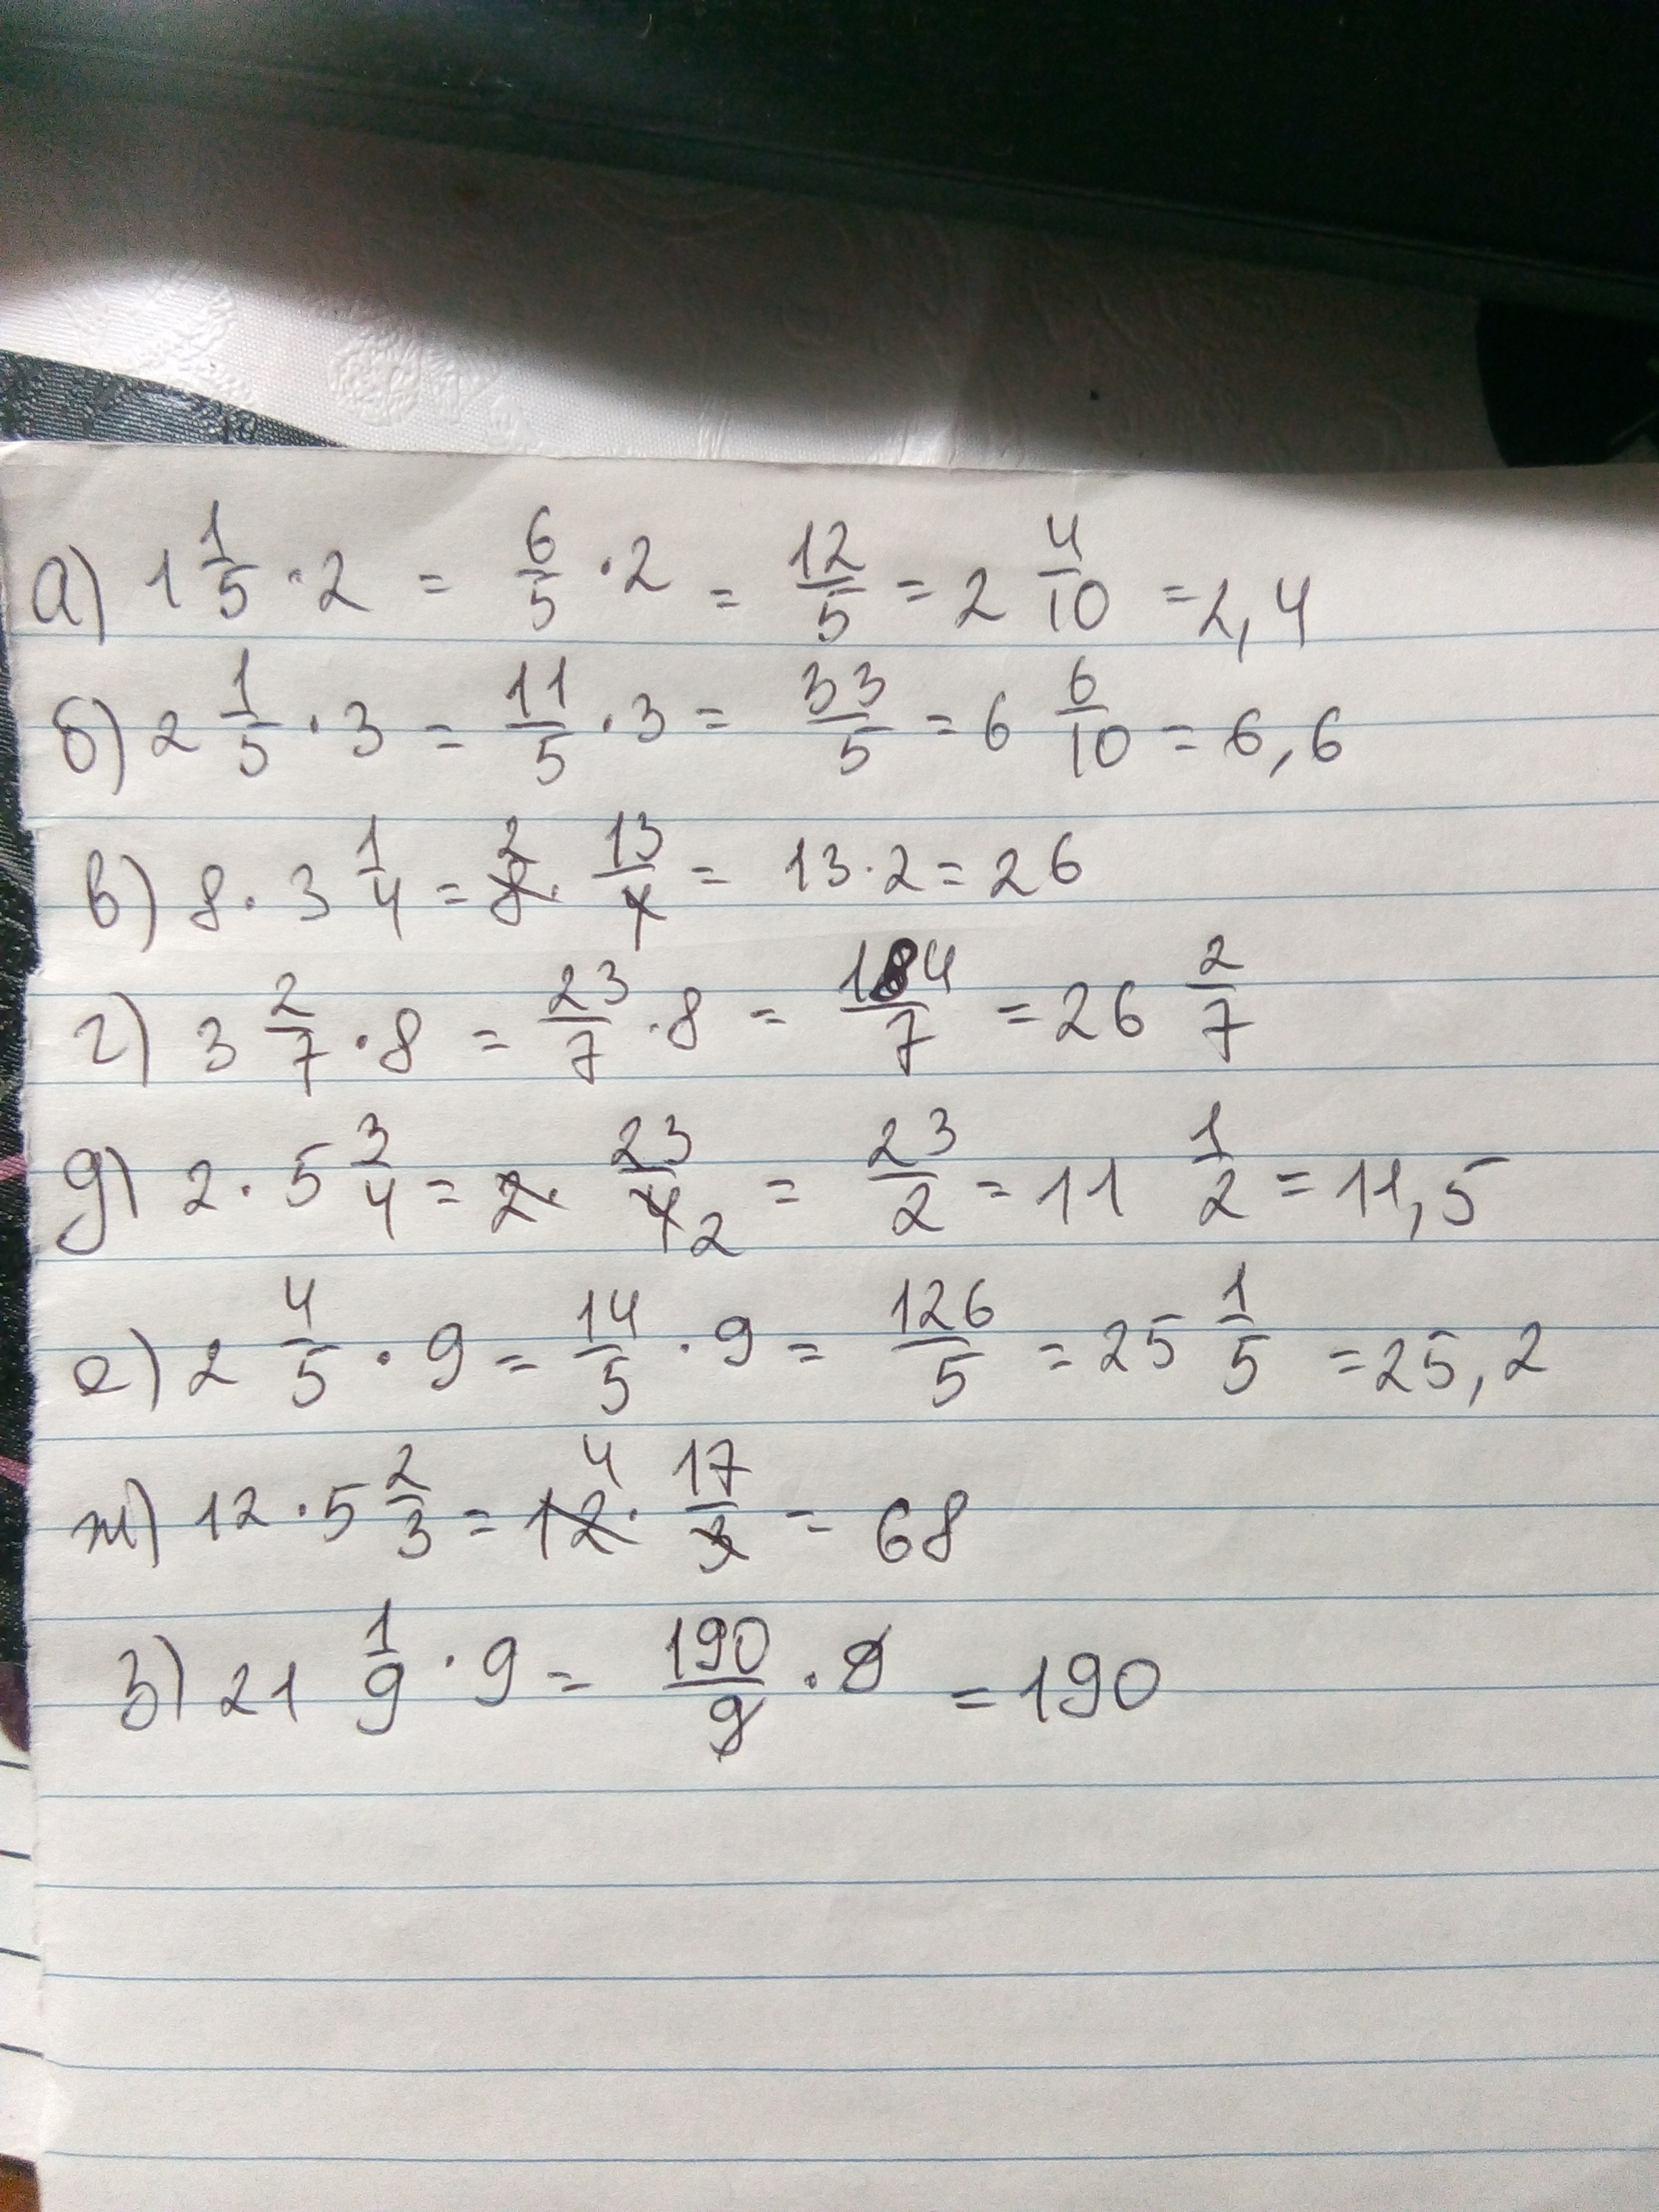 а) 1 1/5 · 2 = 6/5 · 2 = 12/5 = 2 4/10 = 2,4
б) 2 1/5 · 3 = 11/5 · 3 = 33/5 = 6 6/10 = 6,6
в) 8 · 3 1/4 = 8 2 · 13/4 = 13 · 2 = 26
г) 3 2/7 · 8 = 23/7 · 8 = 184/7 = 26 2/7
д) 2 · 5 3/4 = 2 · 23/4 2 = 23/2 = 11 1/2 = 11,5
е) 2 4/5 · 9 = 14/5 · 9 = 126/5 = 25 1/5 = 25,2
ж) 12 · 5 2/3 = 12 4 · 17/3 = 68
з) 21 1/9 · 9 = 190/9 · 9 = 190